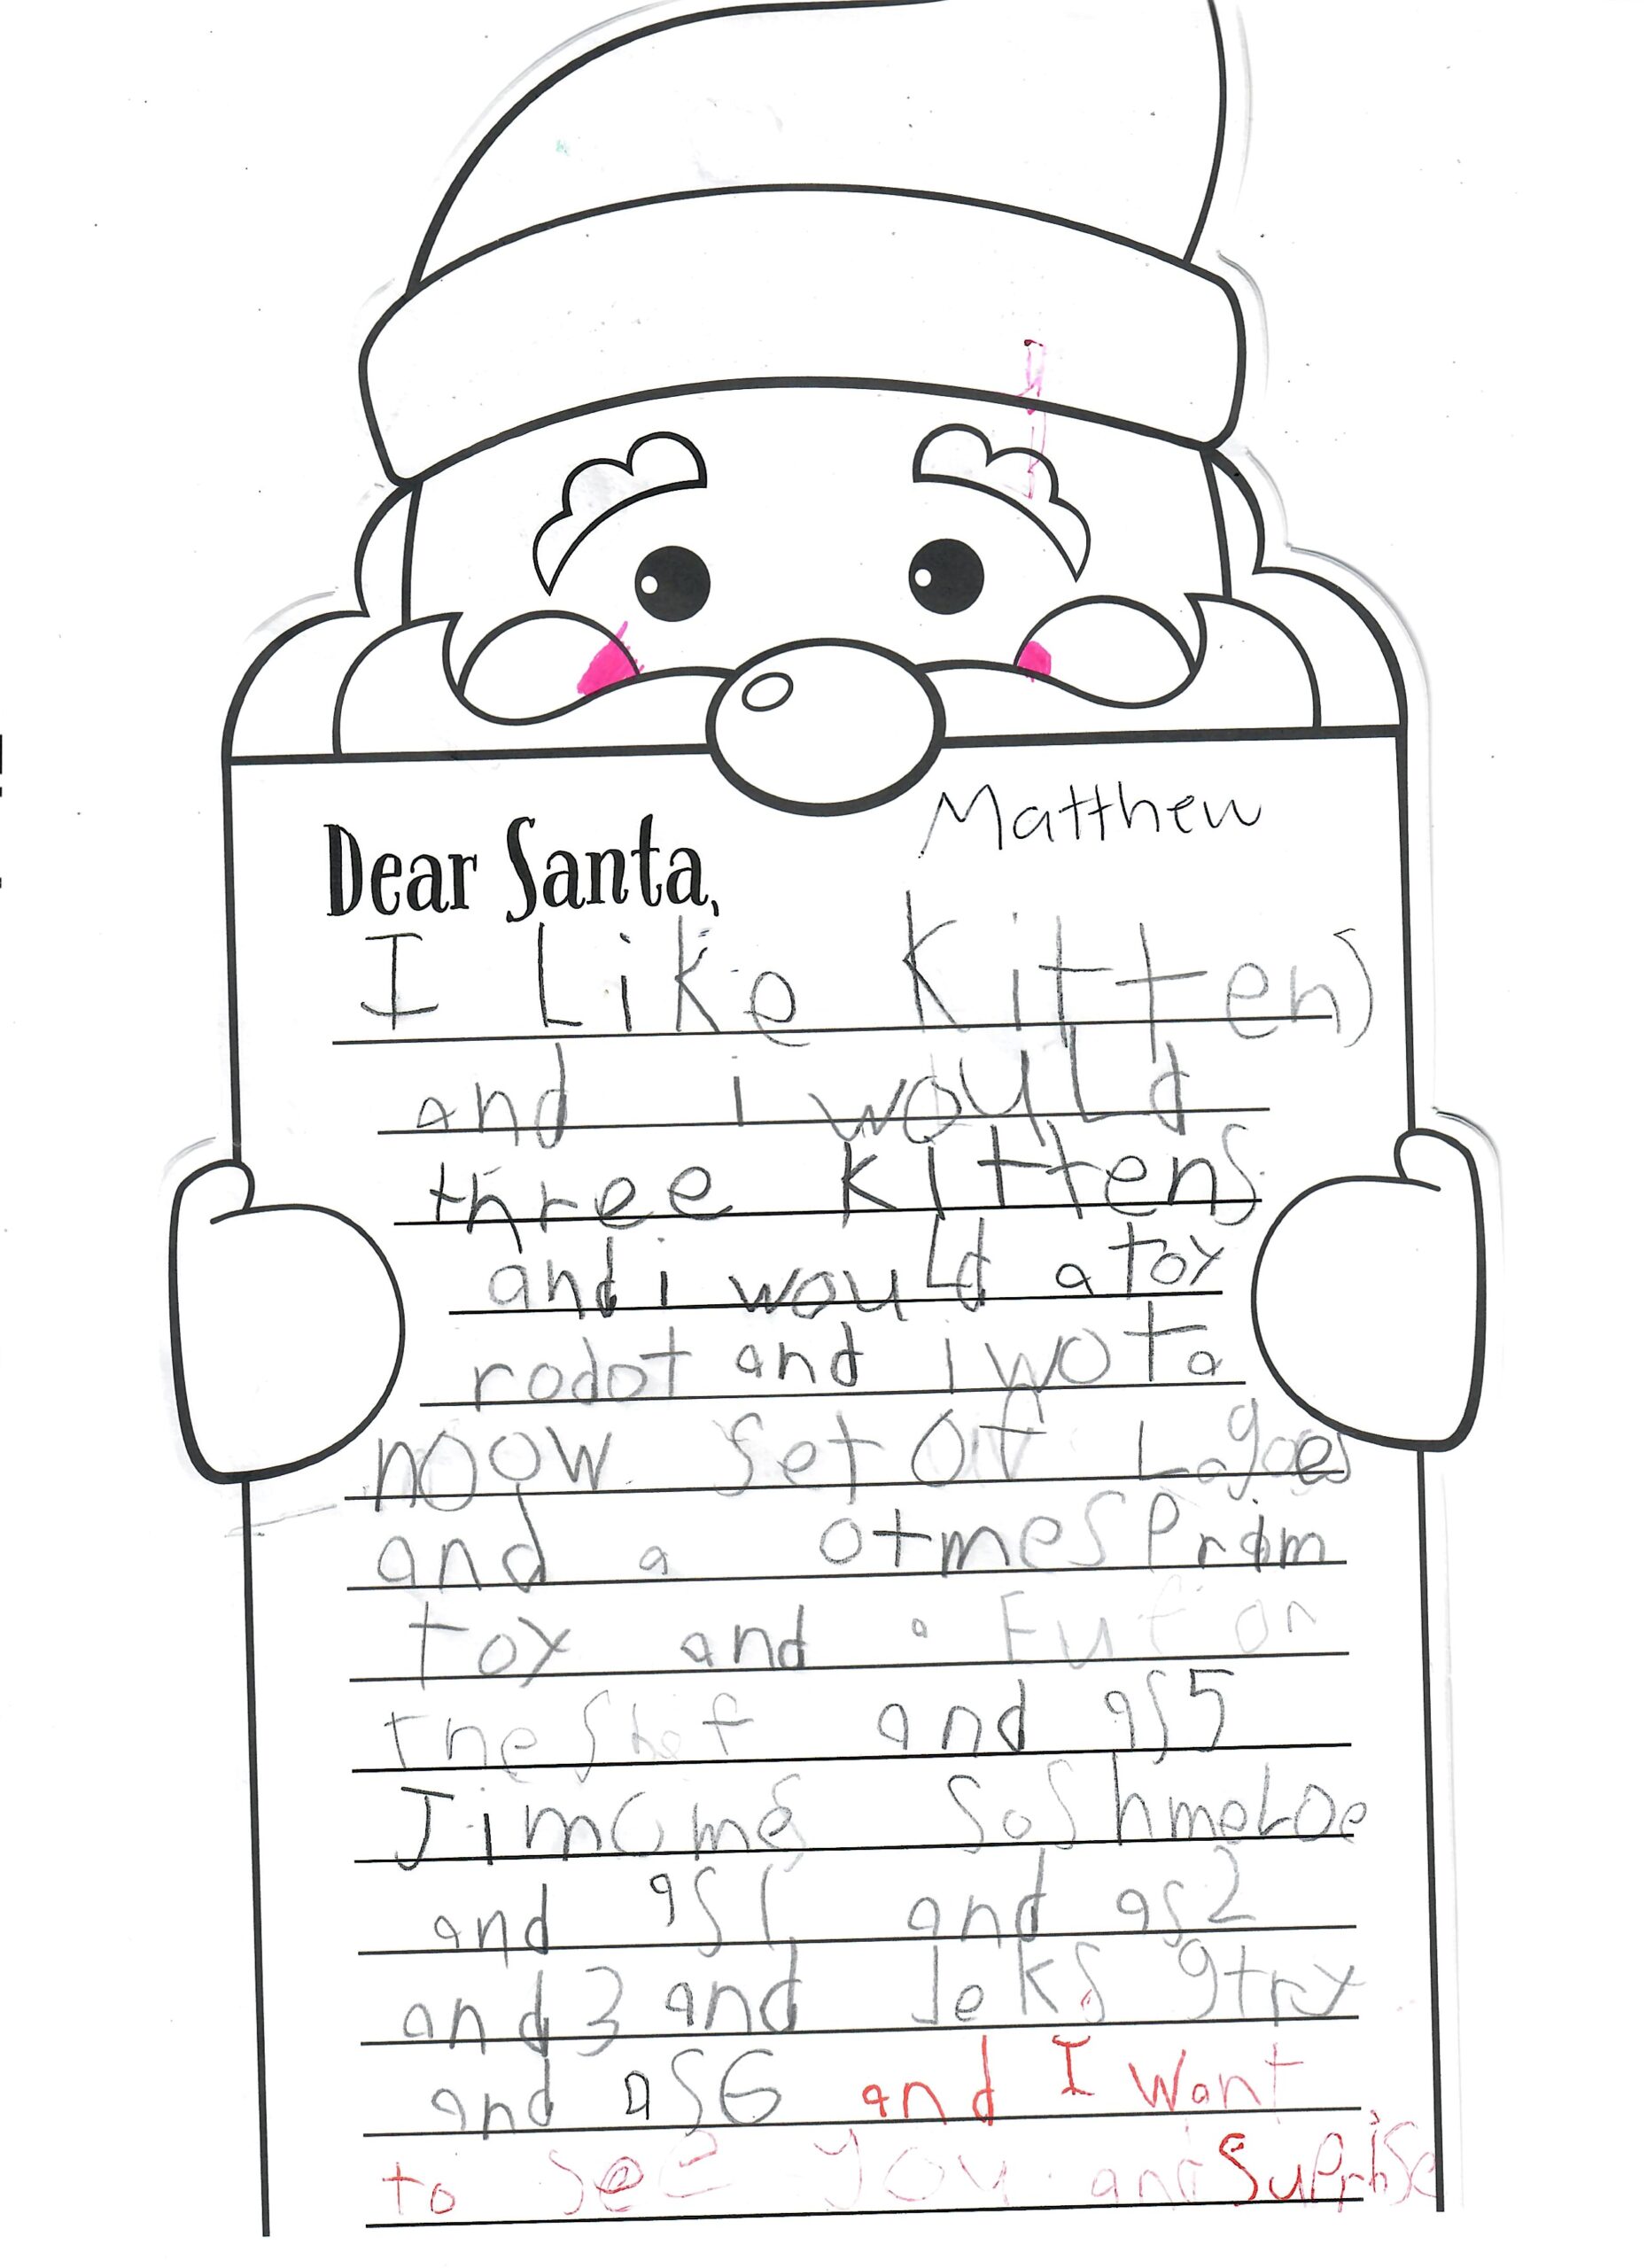 Matthew
Dear Santa,
I Like kittens
and i would
three kittens
and i would a toy
rodot and i wot a
noow set of Lagoes
and a otmes Prim
toy and a Eu on
the Shef and qs5
Jimcmes SoShmeLoe
and qs1 and qs2
and 3 and Jeks gtry
and qs6 and I want
to see you and Suprise